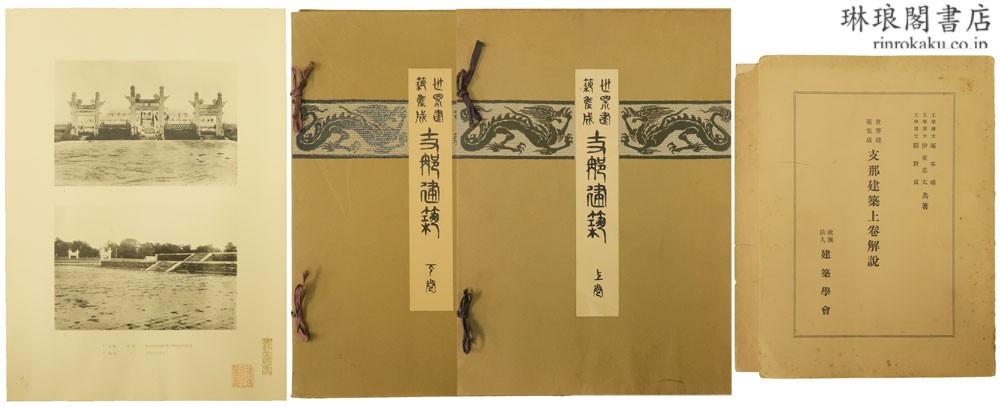 琳琅閣書店
rinrokaku.co.jp
世界建
築集成
支那建築
下卷
世界建
築集成
支那建築
上卷
工學博士 塚本靖
工學博士 伊東忠太 共著
工學博士 關野貞
世界建
築集成
支那建築上卷解說
社團
法人
建築學會